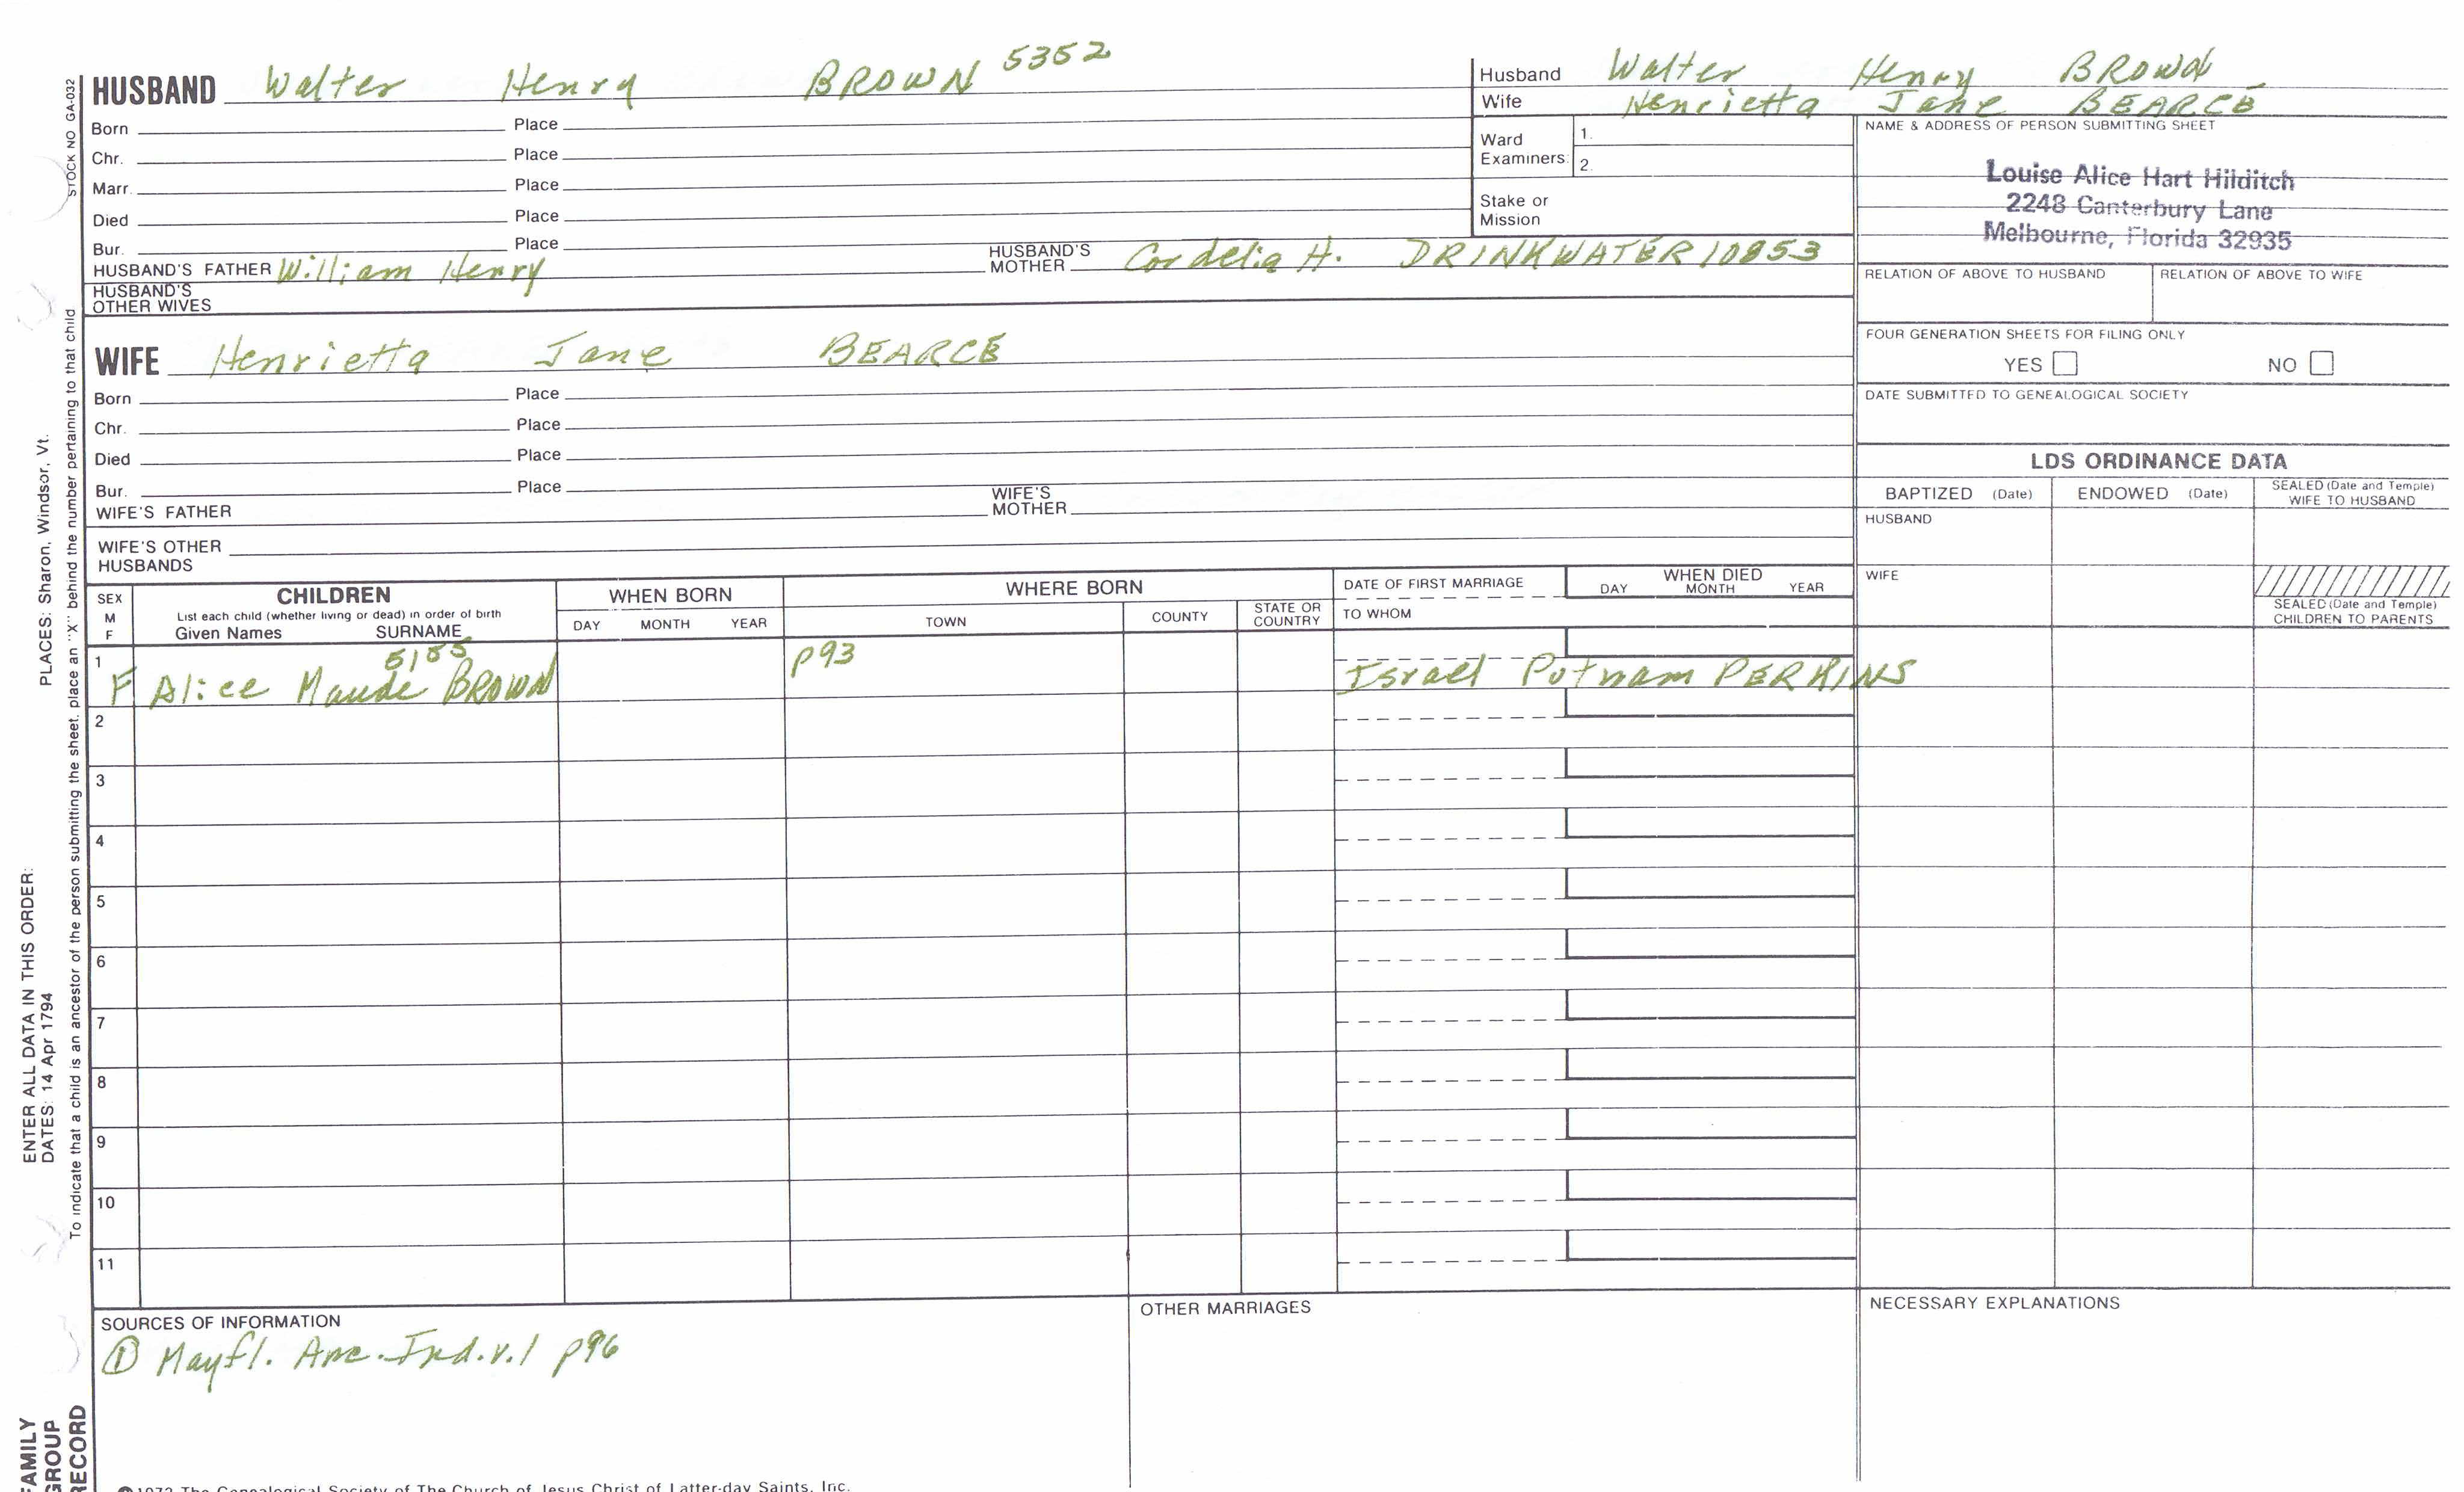 HUSBAND Walter Henry BROWN 5352
Born Place
Chr. Place
Marr. Place
Died Place
Bur. Place
HUSBAND'S FATHER William Henry HUSBAND'S MOTHER Cordelia H. DRINKWATER 10853
HUSBAND'S OTHER WIVES
WIFE Henrietta Jane BEARCE
Born Place
Chr. Place
Died Place
Bur. Place
WIFE'S FATHER WIFE'S MOTHER
WIFE'S OTHER HUSBANDS
Husband Walter Henry BROWN
Wife Henrietta Jane BEARCE
Ward Examiners: 1. 2.
Stake or Mission
NAME & ADDRESS OF PERSON SUBMITTING SHEET
Louise Alice Hart Hilditch
2248 Canterbury Lane
Melbourne, Florida 32935
RELATION OF ABOVE TO HUSBAND RELATION OF ABOVE TO WIFE
FOUR GENERATION SHEETS FOR FILING ONLY
YES NO
DATE SUBMITTED TO GENEALOGICAL SOCIETY
LDS ORDINANCE DATA
BAPTIZED (Date) ENDOWED (Date) SEALED (Date and Temple) WIFE TO HUSBAND
HUSBAND
WIFE
SEALED (Date and Temple) CHILDREN TO PARENTS
SEX M F
CHILDREN
List each child (whether living or dead) in order of birth
Given Names SURNAME
WHEN BORN
DAY MONTH YEAR
WHERE BORN
TOWN COUNTY STATE OR COUNTRY
DATE OF FIRST MARRIAGE
TO WHOM
WHEN DIED
DAY MONTH YEAR
5185
1 F Alice Maude BROWN p93 Israel Putnam PERKINS
2
3
4
5
6
7
8
9
10
11
SOURCES OF INFORMATION
① Mayfl. Anc. Ind. v. 1 p96
OTHER MARRIAGES
NECESSARY EXPLANATIONS
©1972 The Genealogical Society of The Church of Jesus Christ of Latter-day Saints, Inc.
STOCK NO GA-032
PLACES: Sharon, Windsor, Vt.
To indicate that a child is an ancestor of the person submitting the sheet, place an "X" behind the number pertaining to that child
ENTER ALL DATA IN THIS ORDER:
DATES: 14 Apr 1794
FAMILY
GROUP
RECORD